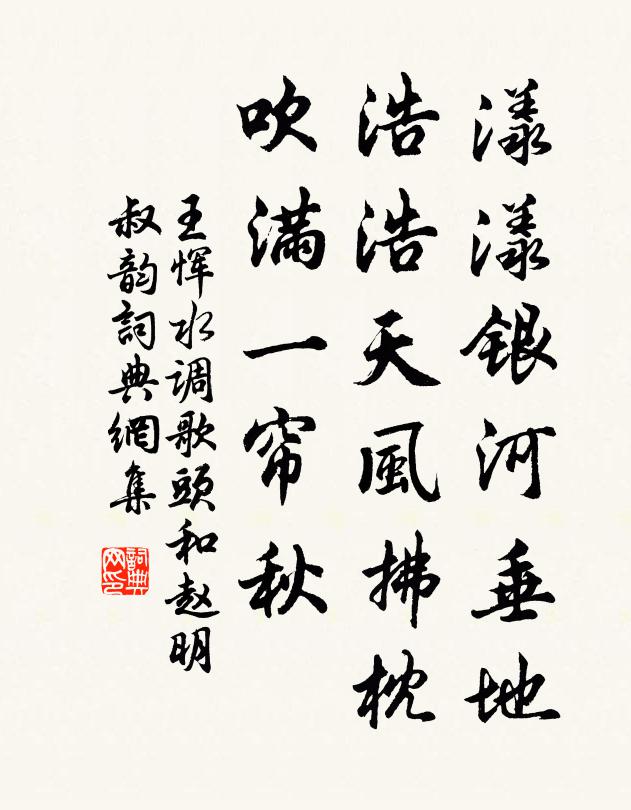 漾漾银河垂地
浩浩天風拂枕
吹满一帘秋
王恽水调歌頭和赵明
叔韵詞典網集
詞典
网印